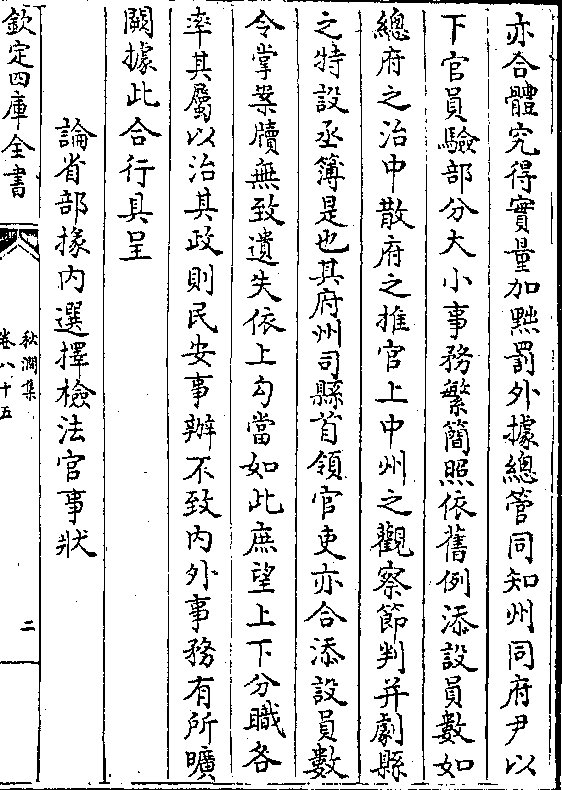 亦合體究得實量加黜罰外據總管同知州同府尹以
下官員驗部分大小事務繁簡照依舊例添設員數如
總府之治中散府之推官上中州之觀察節判并劇縣
之特設丞簿是也其府州司縣首領官吏亦合添設員數
令掌案牘無致遺失依上勾當如此庶望上下分職各
率其屬以治其政則民安事辦不致内外事務有所曠
闕據此合行具呈
論省部掾内選擇檢法官事狀
欽定四庫全書
秋澗集
卷八十五
二